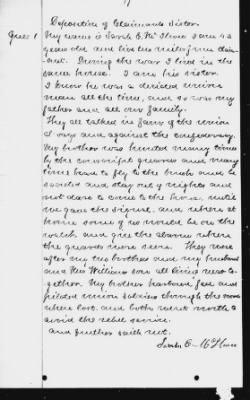 Deposition of Claimants Sister.
Ques 1 My name is Sarah E. McIlwee I am 43
years old and live two miles from clai-
mant. During the war I lived in the
same house. I am his sister.
I know he was a decided union
man all the time, and so was my
father and all our family.
They all talked in favor of the union
I say and against the confederacy.
My brother was hunted many times
by the guerrillas and many
times had to fly to the brush and be
secreted and stay out of nights and
not dare to come to the house, until
we gave the signal, and when at
home some of us would be on the
watch and give the alarm when
the were seen. They were
after my two brothers and my husband
and Mr Williams son all living near to-
gether. My brother harbored, fed and
piloted union soldiers through the
when lost and both went north to
avoid the rebel service.
and further saith not.
Sarah E. McIlwee